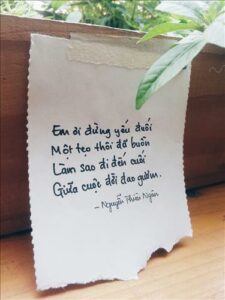 Em ơi đừng yếu đuối
Một tẹo thôi đã buồn
Làm sao đi đến cuối
Giữa cuộc đời dao gươm.
- Nguyễn Thiên Ngân